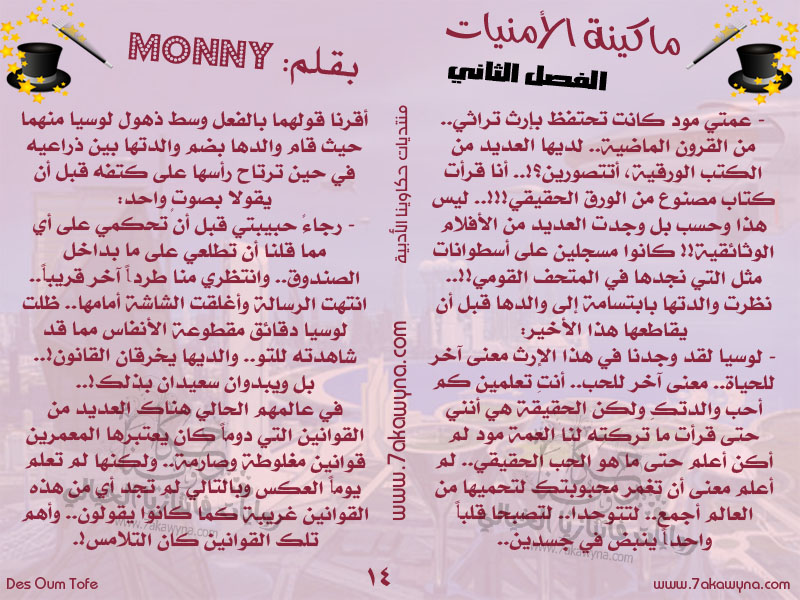 ماكينة الأمنيات
الفصل الثاني
بقلم: MONNY
- عمتي مود كانت تحتفظ بإرث تراثي..
من القرون الماضية.. لديها العديد من
الكتب الورقية، أتتصورين؟!.. أنا قرأت
كتاب مصنوع من الورق الحقيقي!!!.. ليس
هذا وحسب بل وجدت العديد من الأفلام
الوثائقية!! كانوا مسجلين على أسطوانات
مثل التي نجدها في المتحف القومي!!..
نظرت والدتها بابتسامة إلى والدها قبل أن
يقاطعها هذا الأخير:
- لوسيا لقد وجدنا في هذا الإرث معنى آخر
للحياة.. معنى آخر للحب.. أنت تعلمين كم
أحب والدتكِ ولكن الحقيقة هي أنني
حتى قرأت ما تركته لنا العمة مود لم
أكن أعلم حتى ما هو الحب الحقيقي.. لم
أعلم معنى أن تغمر محبوبتك لتحميها من
العالم أجمع.. لتتوحدا.. لتصبحا قلباً
واحداً ينبض في جسدين..
منتديات حكاوينا الأدبية
www.7akawyna.com
أقرنا قولهما بالفعل وسط ذهول لوسيا منهما
حيث قام والدها بضم والدتها بين ذراعيه
في حين ترتاح رأسها على كتفه قبل أن
يقولا بصوت واحد:
- رجاءً حبيبتي قبل أن تحكمي على أي
مما قلنا أن تطلعي على ما بداخل
الصندوق.. وانتظري منا طرداً آخر قريباً..
انتهت الرسالة وأغلقت الشاشة أمامها.. ظلت
لوسيا دقائق مقطوعة الأنفاس مما قد
شاهدته للتو.. والديها يخرقان القانون!..
بل ويبدوان سعيدان بذلك!..
في عالمهم الحالي هناك العديد من
القوانين التي دوماً كان يعتبرها المعمرين
قوانين مغلوطة وصارمة.. ولكنها لم تعلم
يوماً العكس وبالتالي لم تجد أي من هذه
القوانين غريبة كما كانوا يقولون.. وأهم
تلك القوانين كان التلامس!.
www.7akawyna.com
www.7akawyna.com
Des Oum Tofe
١٤
www.7akawyna.com